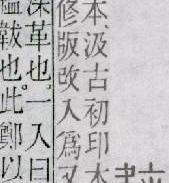 本汲古初印本
修版改入爲又
深革也一入曰
韞韍也此鄭以